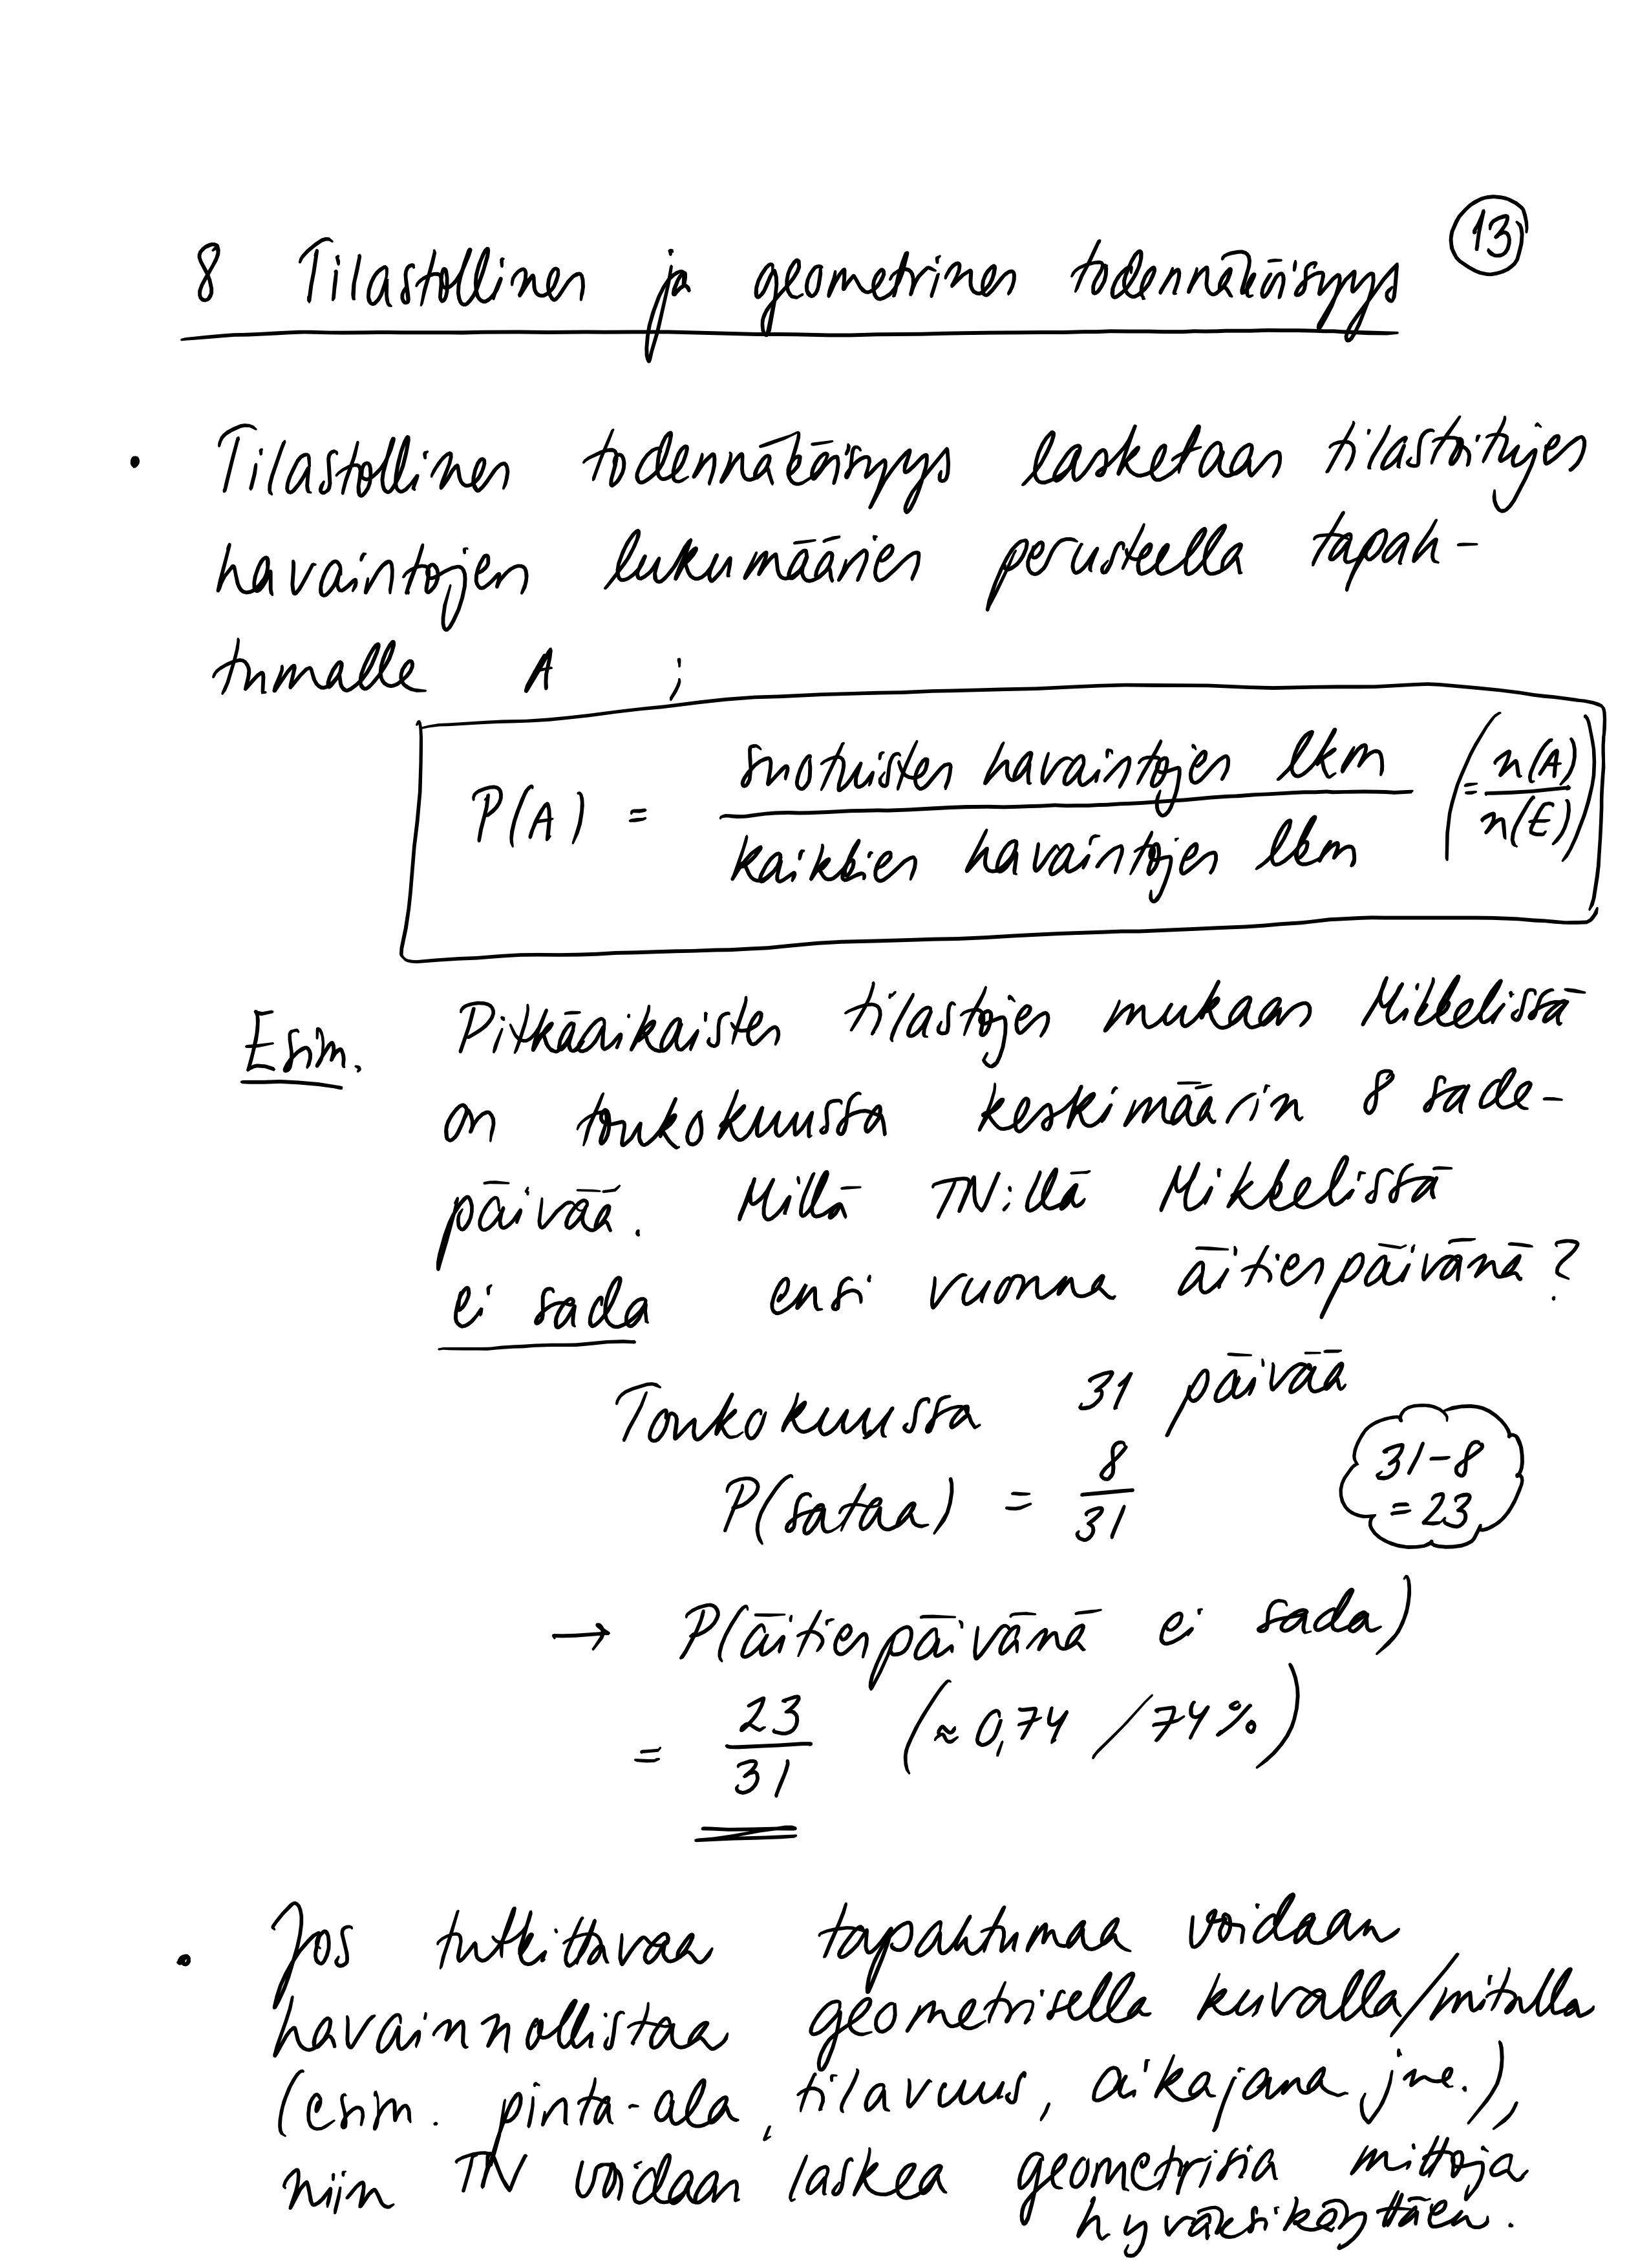 13
8 Tilastollinen ja geometrinen todennäköisyys
• Tilastollinen todennäköisyys lasketaan tilastoitujen
havaintojen lukumäärien perusteella tapah-
tumalle A ;
P(A) = suotuisten havaintojen lkm / kaikkien havaintojen lkm (= n(A) / n(E))
Esim. Pitkäaikaisten tilastojen mukaan Mikkelissä
on toukokuussa keskimäärin 8 sade-
päivää. Millä TN:llä Mikkelissä
ei sada ensi vuonna äitienpäivänä?
Toukokuussa 31 päivää
P(sataa) = 8/31
31-8
= 23
→ P(äitienpäivänä ei sada)
= 23/31 (≈ 0,74 / 74%)
• Jos tutkittavaa tapahtumaa voidaan
havainnollistaa geometrisella kuvalla/mitalla
(esim. pinta-ala, tilavuus, aikajana jne.),
niin TN voidaan laskea geometrisia mittoja
hyväksikäyttäen.